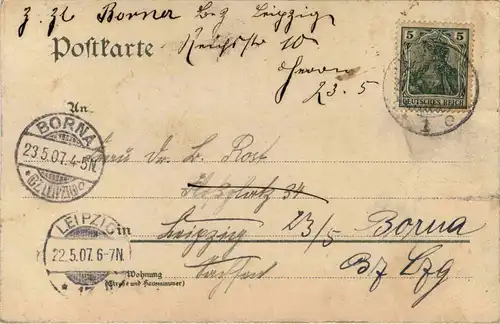 z. Zt Borna Bz Leipzig
Reichsstr 10
Postkarte
Herrn
23.5
5 5
DEUTSCHES REICH
An
BORNA
23.5.07. 4-5N.
*(BZ. LEIPZIG)
Frau Dr. L. Rost
34
LEIPZIG
22.5.07. 6-7N.
in
Leipzig 23/5 Borna
Sachsen Bz Lzg
Wohnung
(Straße und Hausnummer)